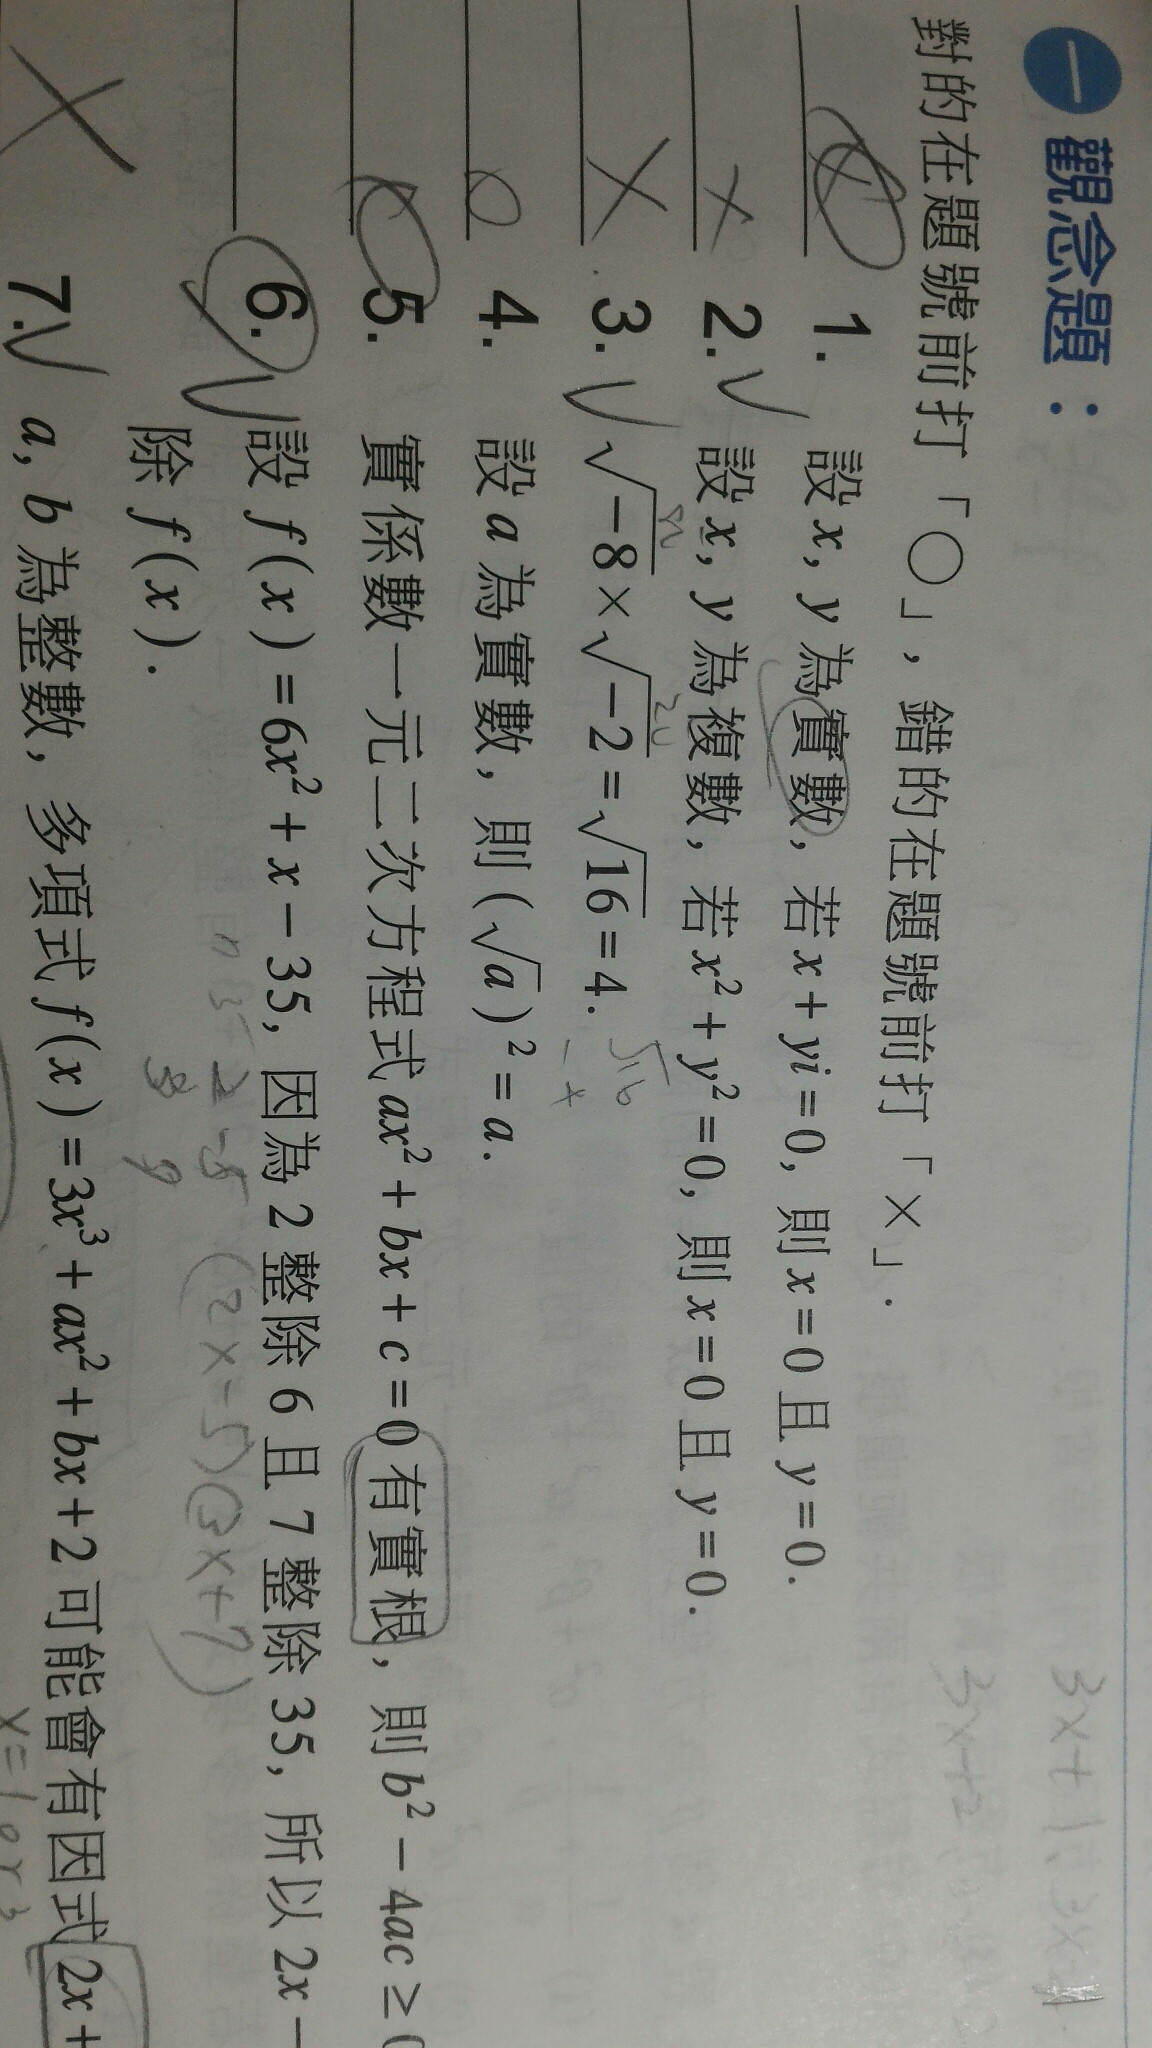 一 觀念題：
對的在題號前打「○」，錯的在題號前打「×」.
1. 設 x, y 為實數，若 x + yi = 0, 則 x = 0 且 y = 0.
× 2. 設 x, y 為複數，若 x² + y² = 0, 則 x = 0 且 y = 0.
× 3. √-8 × √-2 = √16 = 4.
○ 4. 設 a 為實數，則 (√a)² = a.
5. 實係數一元二次方程式 ax² + bx + c = 0 有實根，則 b² − 4ac ≥ 0
6. 設 f(x) = 6x² + x − 35, 因為 2 整除 6 且 7 整除 35, 所以 2x −
除 f(x).
(2x−5)(3x+7)
× 7. a, b 為整數，多項式 f(x) = 3x³ + ax² + bx + 2 可能會有因式 2x +